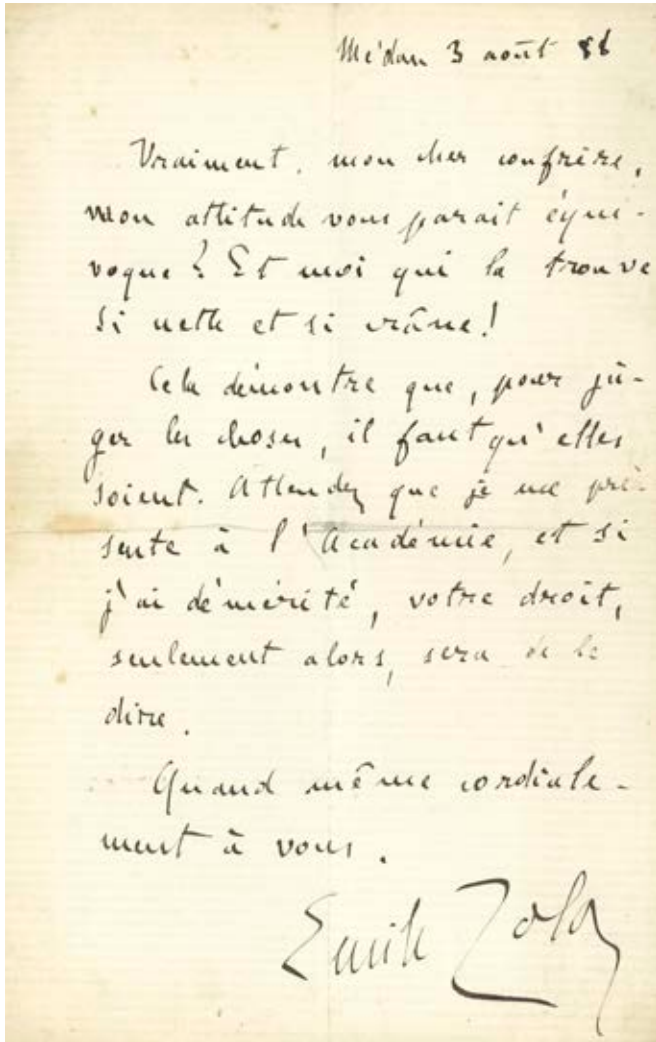 Médan 3 août 88
Vraiment, mon cher confrère,
mon attitude vous parait équi-
voque ? Et moi qui la trouve
si nette et si crâne !
Cela démontre que, pour ju-
ger les choses, il faut qu'elles
soient. Attendez que je me pré-
sente à l'Académie, et si
j'ai démérité, votre droit,
seulement alors, sera de le
dire.
Quand même cordiale-
ment à vous.
Emile Zola